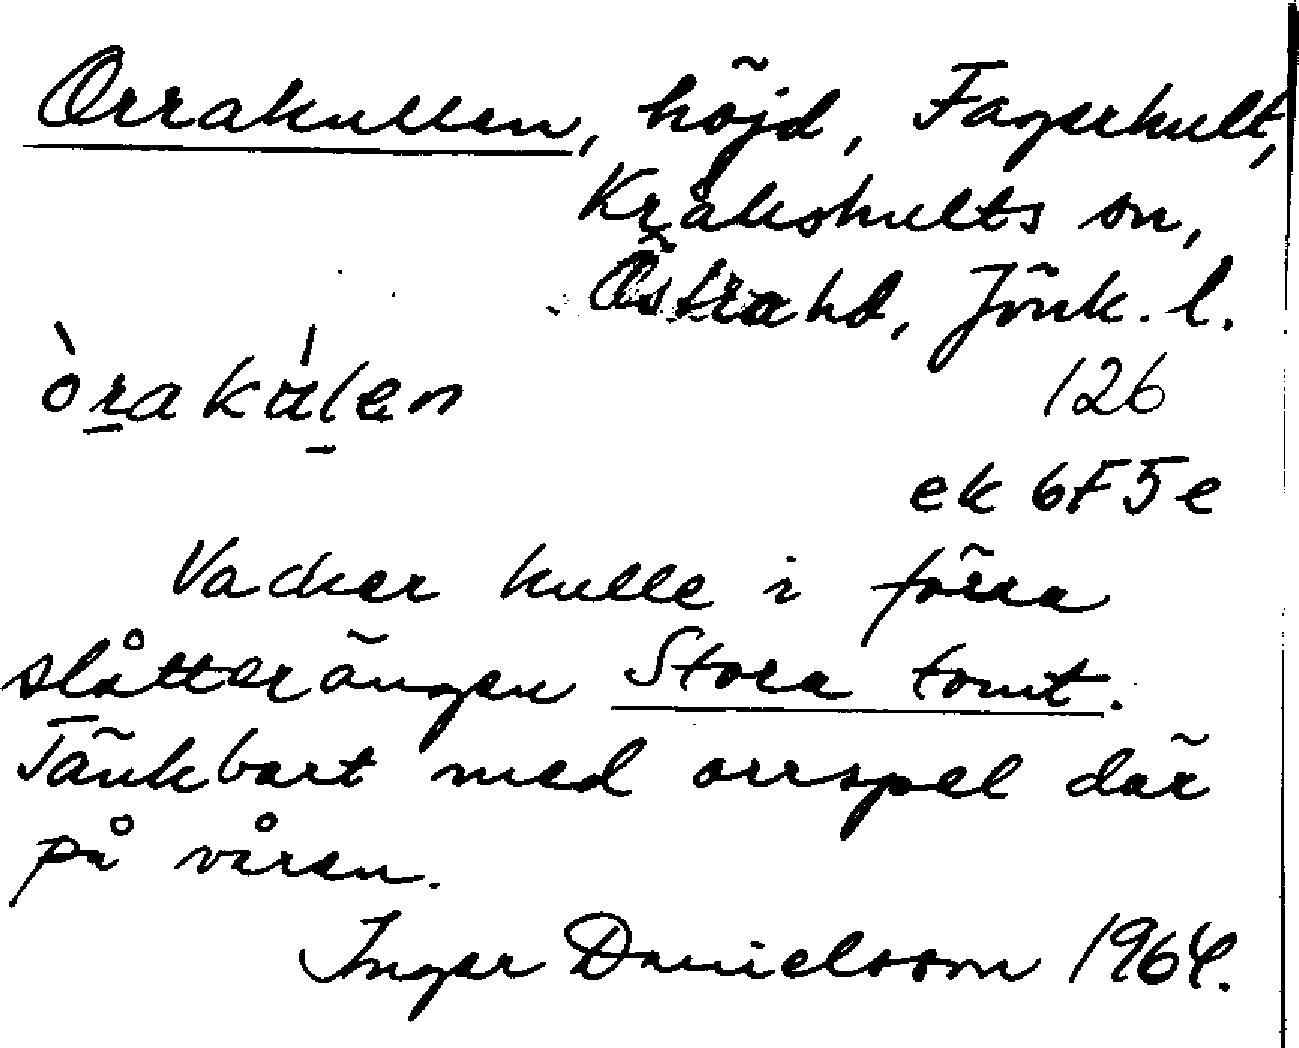 Orrakullen, höjd, Fagerhult,
Kråkshults sn,
Östra hd, Jönk. l.
òrakálen
126
ek 6F5e
Vacker kulle i förra
slåtterängen Stora tomt.
Tänkbart med orrspel där
på våren.
Inger Danielsson 1964.